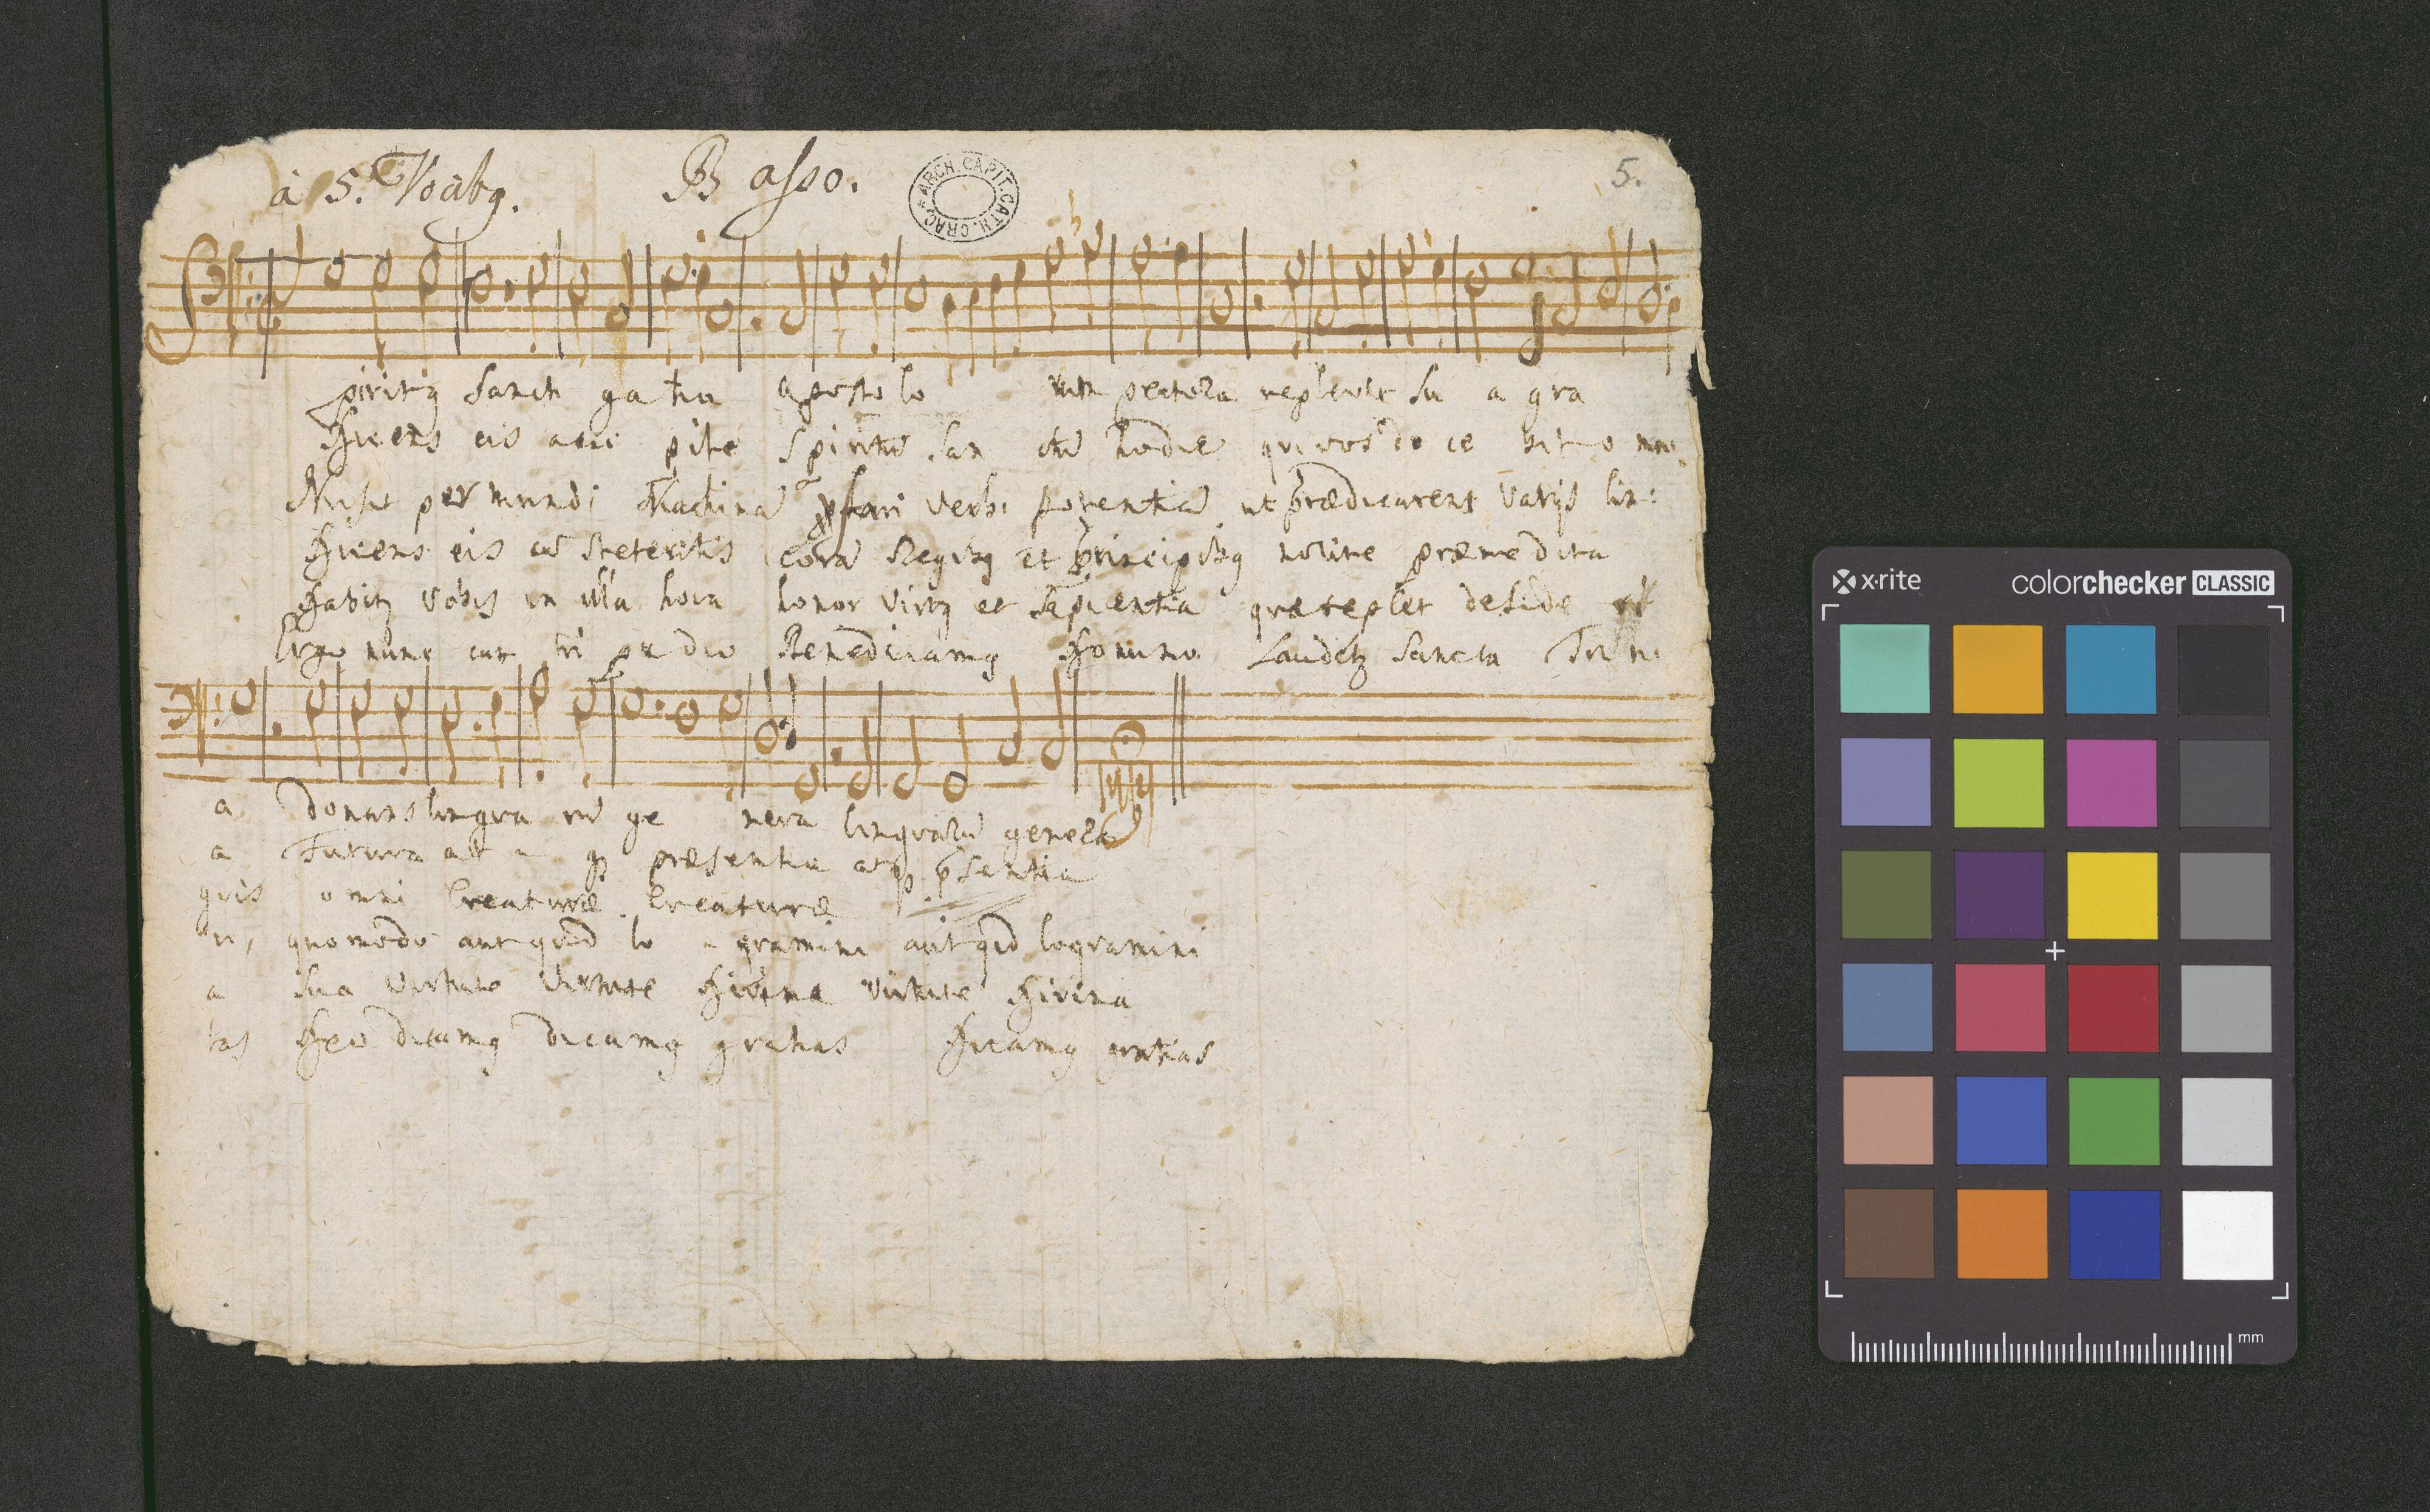 à 5. Vocibq. Basso. 5.
ARCH. CAPIT. CATH. CRAC.
Spiritq Sancti gratia aposto lo rum pectora replevit su a gra
Dicens eis acci pite Spiritū San ctū hodie qui vos do ce bit o mni
Misit per mundi Machinā verbi potentiā ut prædicarent varijs lin:
Dicens eis cū steteritis corā Regibq et principibq nolite præmedita
Dabitz vobis in illa hora honor virtq et sapientia quæ replet deside ri
Ergo nunc cum tri pu dio Benedicamq Domino Laudetz Sancta Trini
a donans lingua rū ge nera linguarū genera
a Futura at - qz præsentia atqz psentia
guis omni Creaturæ. Creaturæ
ri, quomodo aut quid lo - quamini aut qid loquamini
a sua virtute virtute Divina virtute Divina
tas Deo dicamq dicamq gratias Dicamq gratias
x-rite colorchecker CLASSIC
mm